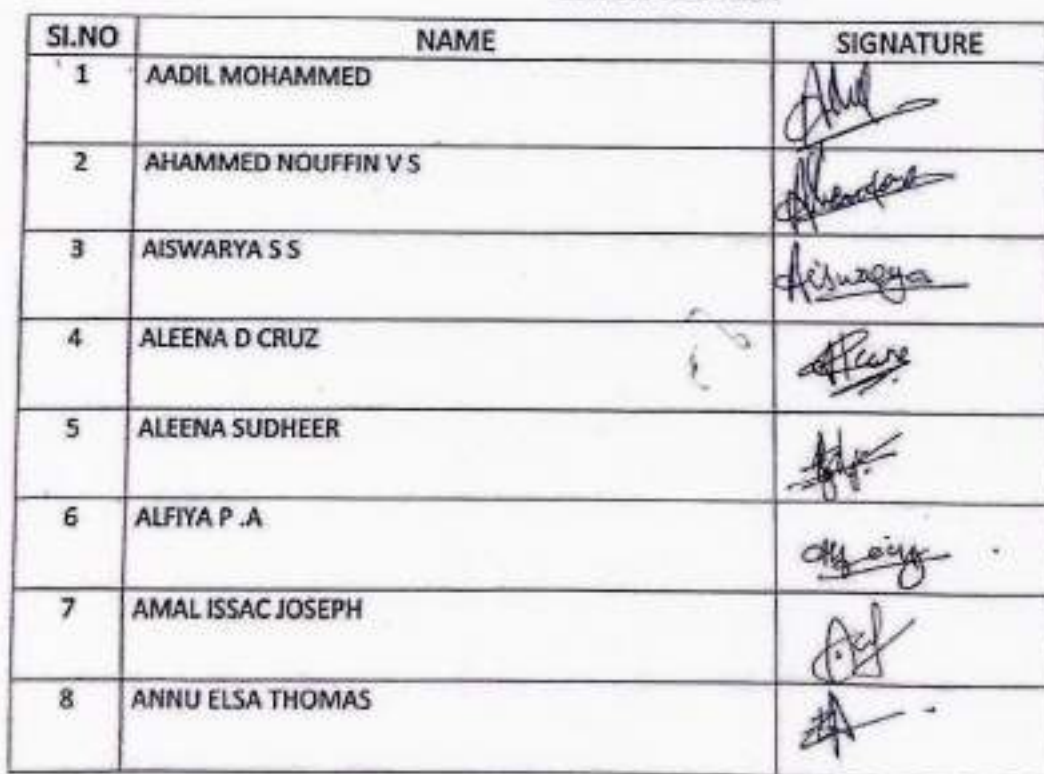 SI.NO NAME SIGNATURE
1 AADIL MOHAMMED
2 AHAMMED NOUFFIN V S
3 AISWARYA S S Aiswarya
4 ALEENA D CRUZ
5 ALEENA SUDHEER
6 ALFIYA P .A
7 AMAL ISSAC JOSEPH
8 ANNU ELSA THOMAS